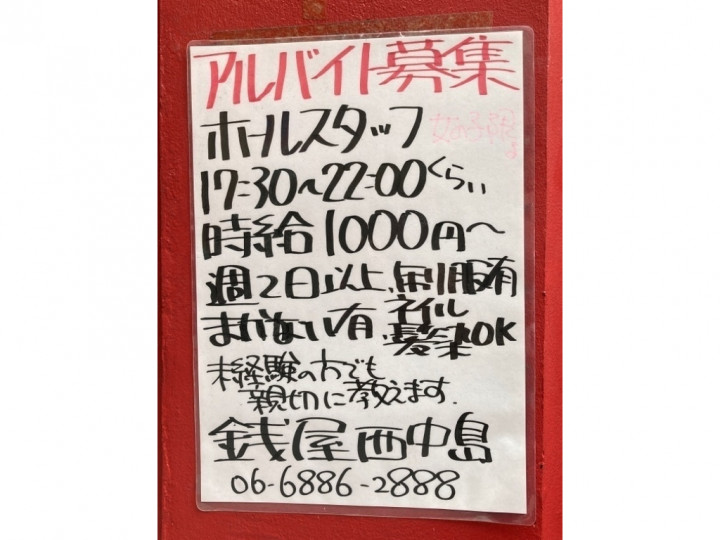 アルバイト募集
ホールスタッフ
17:30〜22:00くらい
時給1000円〜
週2日以上、制服有
まかない有 ネイル 髪染OK
未経験の方でも
親切に教えます.
銭屋西中島
06-6886-2888